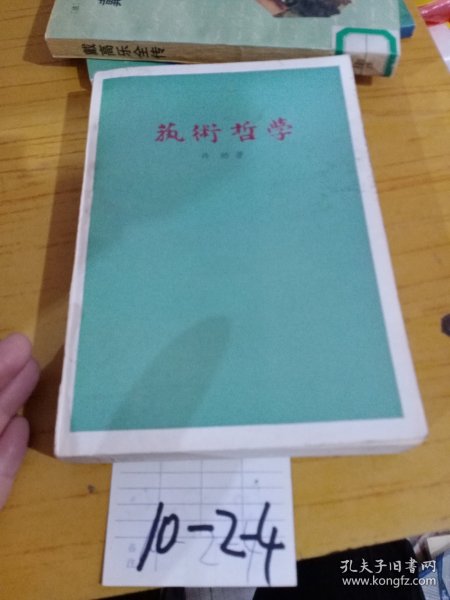 戴高乐全传
执術哲学
丹纳著
10-2-4
孔夫子旧书网
www.kongfz.com